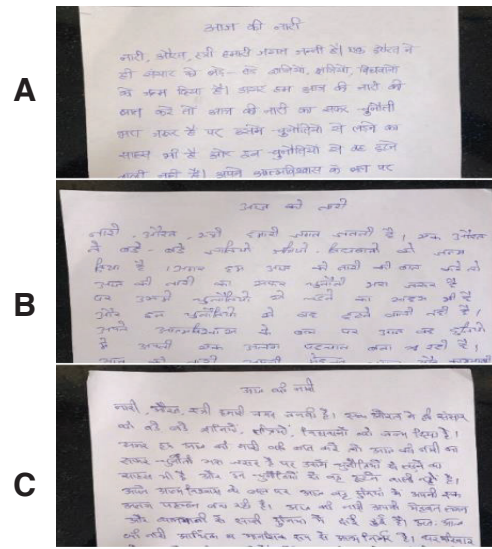 A
आज की नारी
नारी, औरत, स्त्री हमारी जगत जननी है। एक औरत ने
ही संसार को बड़े-बड़े
को जन्म दिया है। अगर हम आज की नारी की
बात करें तो आज की नारी का सफर चुनौती
भरा जरूर है पर उसमें चुनौतियों से लड़ने का
साहस भी है और इन चुनौतियों से वह डरने
वाली नहीं है। अपने आत्मविश्वास के बल पर
B
आज की नारी
नारी, औरत, स्त्री हमारी जगत जननी है। एक औरत
ने बड़े-बड़े को जन्म
दिया है। अगर हम आज की नारी की बात करें तो
आज की नारी का सफर चुनौती भरा जरूर है
पर उसमें चुनौतियों से लड़ने का साहस भी है
और इन चुनौतियों से वह डरने वाली नहीं है।
अपने आत्मविश्वास के बल पर आज वह दुनिया
में अपनी एक अलग पहचान बना रही है।
आज की नारी अपनी मेहनत
C
आज की नारी
नारी, औरत, स्त्री हमारी जगत जननी है। एक औरत ने ही संसार
को बड़े बड़े को जन्म दिया है।
अगर हम आज की नारी की बात करें तो आज की नारी का
सफर चुनौती भरा जरूर है पर उसमें चुनौतियों से लड़ने का
साहस भी है और इन चुनौतियों से वह डरने वाली नहीं है।
अपने आत्म विश्वास के बल पर आज वह दुनिया में अपनी एक
अलग पहचान बना रही है। आज की नारी अपनी मेहनत लगन
और के दुनिया में हुई है। आज
की नारी आर्थिक व मानसिक रूप से आत्म निर्भर है।